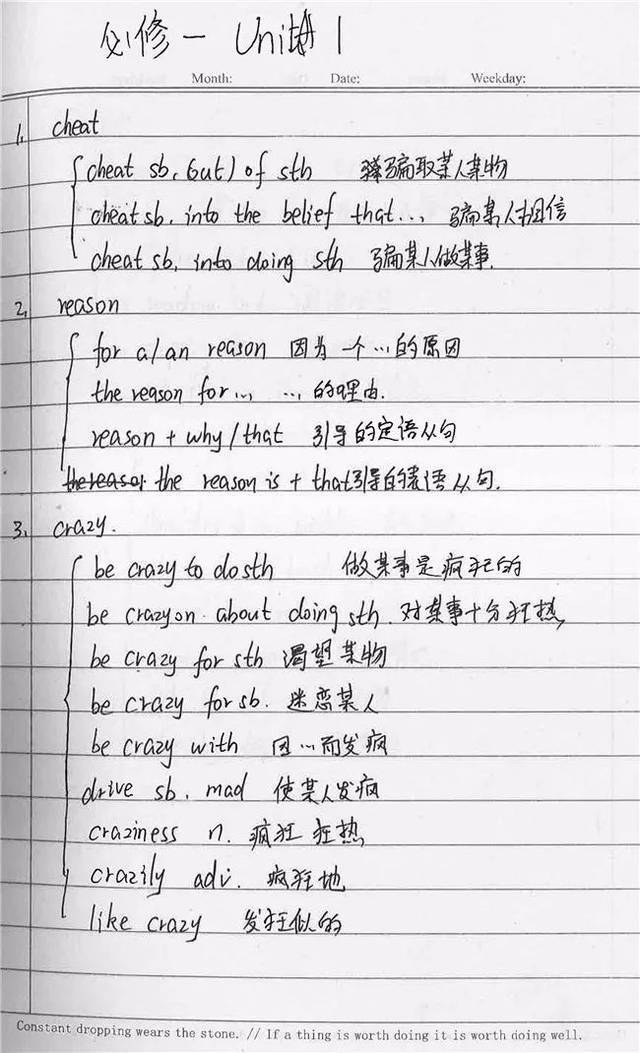 必修一 Unit 1
Month: Date: Weekday:
1. cheat
cheat sb. (out) of sth 骗取某人某物
cheat sb. into the belief that... 骗某人相信
cheat sb. into doing sth 骗某人做某事.
2. reason
for a/an reason 因为一个...的原因
the reason for... ...的理由.
reason + why/that 引导的定语从句
the reason is + that引导的表语从句.
3. crazy.
be crazy to do sth 做某事是疯狂的
be crazy on. about doing sth. 对某事十分狂热,
be crazy for sth 渴望某物
be crazy for sb. 迷恋某人
be crazy with 因...而发疯
drive sb. mad 使某人发疯
craziness n. 疯狂 狂热
crazily adv. 疯狂地
like crazy 发狂似的
Constant dropping wears the stone. // If a thing is worth doing it is worth doing well.